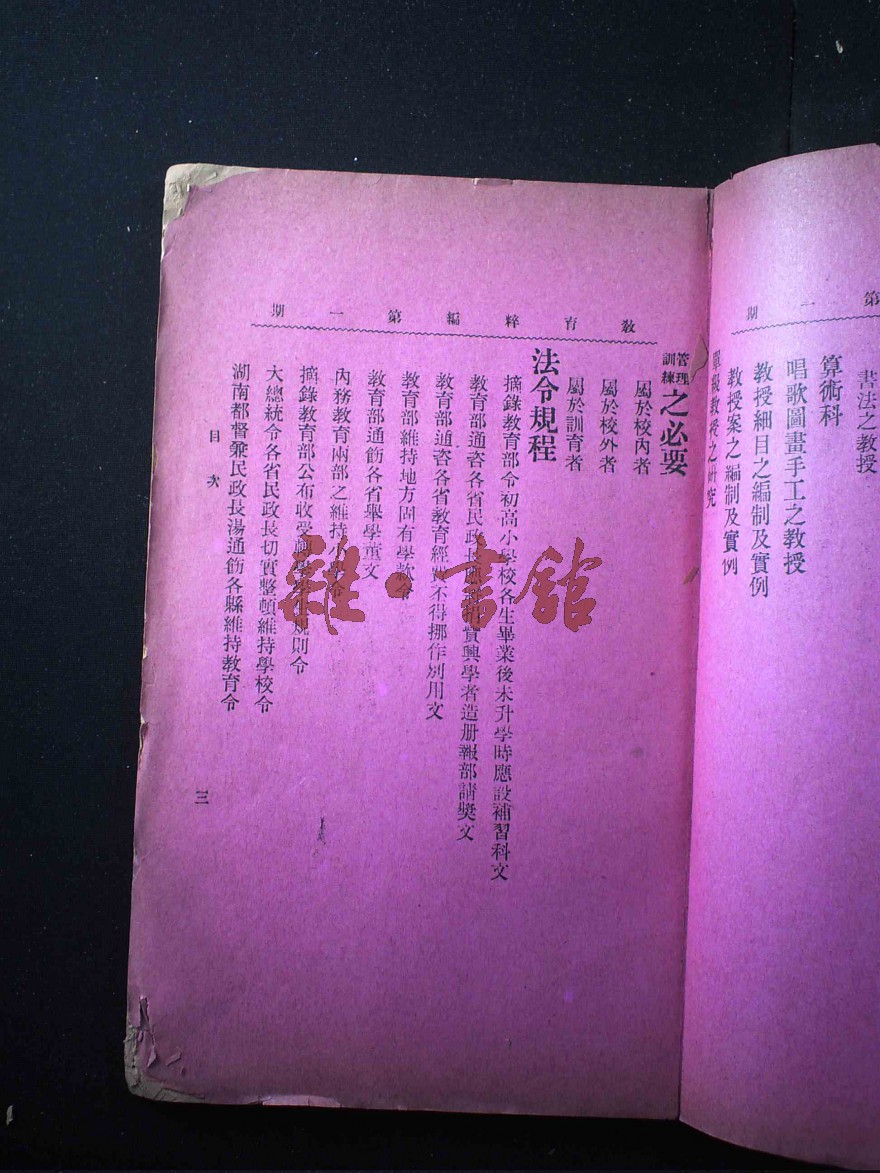 第一期
書法之教授
算術科
唱歌圖畫手工之教授
教授細目之編制及實例
教授案之編制及實例
單級教授之研究
教育粹編第一期
管理訓練之必要
屬於校內者
屬於校外者
屬於訓育者
法令規程
摘錄教育部令初高小學校各生畢業後未升學時應設補習科文
教育部通咨各省民政長應將捐貲興學者造册報部請獎文
教育部通咨各省教育經費不得挪作別用文
教育部維持地方固有學款令
教育部通飭各省舉學董文
內務教育兩部之維持小學令
摘錄教育部公布收受轉學學生規則令
大總統令各省民政長切實整頓維持學校令
湖南都督兼民政長湯通飭各縣維持教育令
目次
三
雜·書館